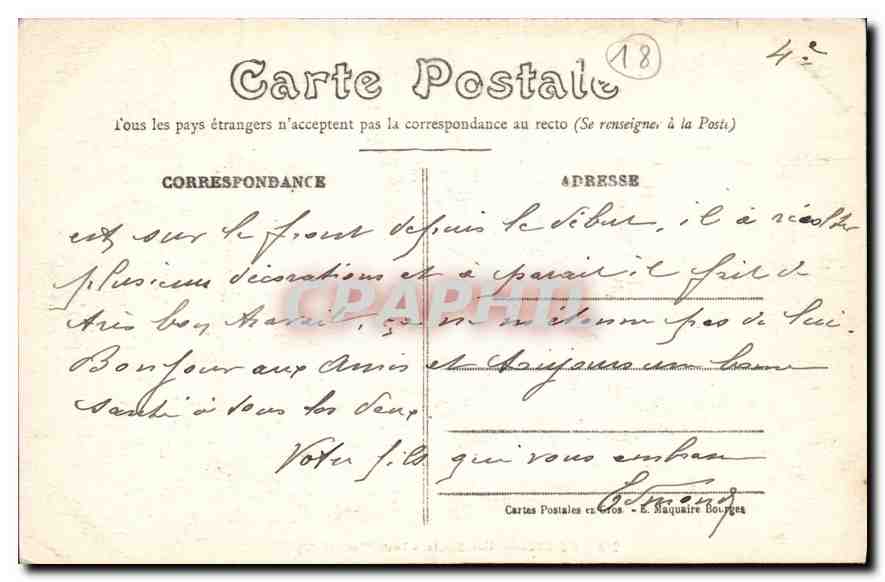 18
4e
Carte Postale
Tous les pays étrangers n'acceptent pas la correspondance au recto (Se renseigner à la Poste)
CORRESPONDANCE
ADRESSE
est sur le front depuis le début, il a récolter
plusieurs décorations et à parait il fait de
très bon travail, ça ne m'étonne pas de lui.
Bonjour aux amis et toujours une bonne
santé à tous les deux.
Votre fils qui vous embrasse
Edmond
Cartes Postales en Gros - E. Maquaire Bourges
CPAPHIL